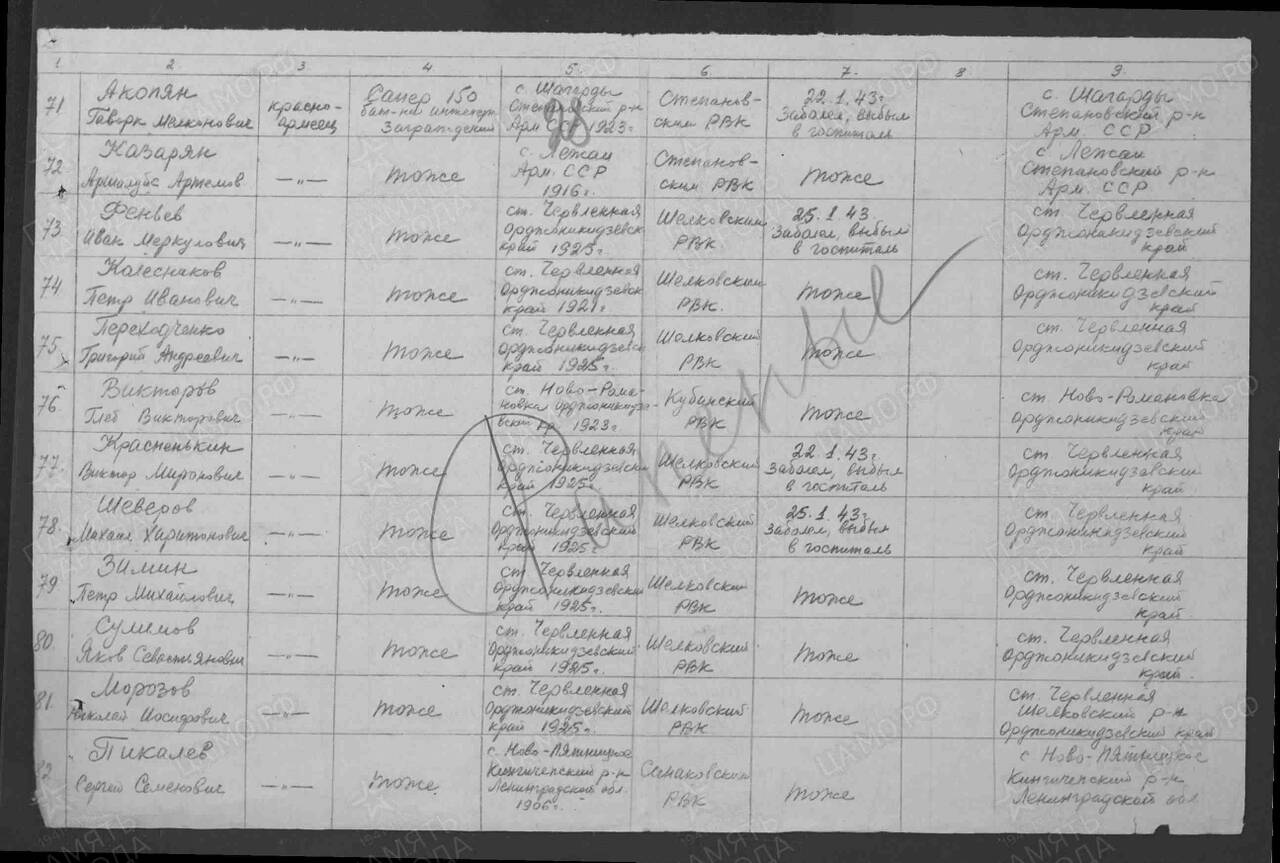 1. 2. 3 4 5. 6. 7. 8 9.
71 Акопян Геворк Мелконович красно-армеец Сапер 150 бат-на инженерн. Заграждений с. Шагарды Степановский р-н Арм ССР 1923г. Степанов-ским РВК 22.1.43г. Заболел, выбыл в госпиталь с. Шагарды Степановский р-н Арм. ССР
98
72 Казарян Артемов —„— тоже с. Лежан Арм. ССР 1916г. Степанов-ским РВК тоже с. Лежан Степановский р-н Арм. ССР
73 Феньев Иван Меркулович —„— тоже ст. Червленная Орджоникидзевск край 1925г. Шелковский РВК 25.1.43. Заболел, выбыл в госпиталь ст. Червленная Орджоникидзевский край
74 Колесников Петр Иванович —„— тоже ст. Червленная Орджоникидзевск край 1921г. Шелковский РВК. тоже ст. Червленная Орджоникидзевский край
75 Переходченко Григорий Андреевич —„— тоже ст. Червленная Орджоникидзевск край 1925г. Шелковский РВК тоже ст. Червленная Орджоникидзевский край
76 Викторов Глеб Викторович —„— тоже ст. Ново-Рома-новка Орджоникидзе-вский кр. 1923г. Кубинский РВК тоже ст Ново-Романовка Орджоникидзевский край
77 Красненькин Виктор Миронович —„— тоже ст. Червленная Орджоникидзевски край 1925г. Шелковский РВК 22.1.43г. Заболел, выбыл в госпиталь ст. Червленная Орджоникидзевский край.
78. Шеверов Михаил Харитонович —„— тоже ст. Червленная Орджоникидзевский край 1925г. Шелковский РВК 25.1.43г. Заболел, выбыл в госпиталь ст Червленная Орджоникидзевский край
79 Зимин Петр Михайлович —„— тоже ст. Червленная Орджоникидзевский край 1925г. Шелковский РВК тоже ст. Червленная Орджоникидзевский край.
80. Сулимов Яков Севастьянович —„— тоже ст. Червленная Орджоникидзевский край 1925г. Шелковский РВК тоже ст. Червленная Орджоникидзевский край.
81. Морозов Николай Иосифович —„— тоже ст. Червленная Орджоникидзевский край 1925г. Шелковский РВК тоже ст. Червленная Шелковский р-н Орджоникидзевский край
82 Пикалев Сергей Семенович —„— тоже с. Ново-Пятницкое Кингичепский р-н Ленинградской обл. 1906г. РВК тоже с. Ново-Пятницкое Кингичепский р-н Ленинградской обл
Раненые